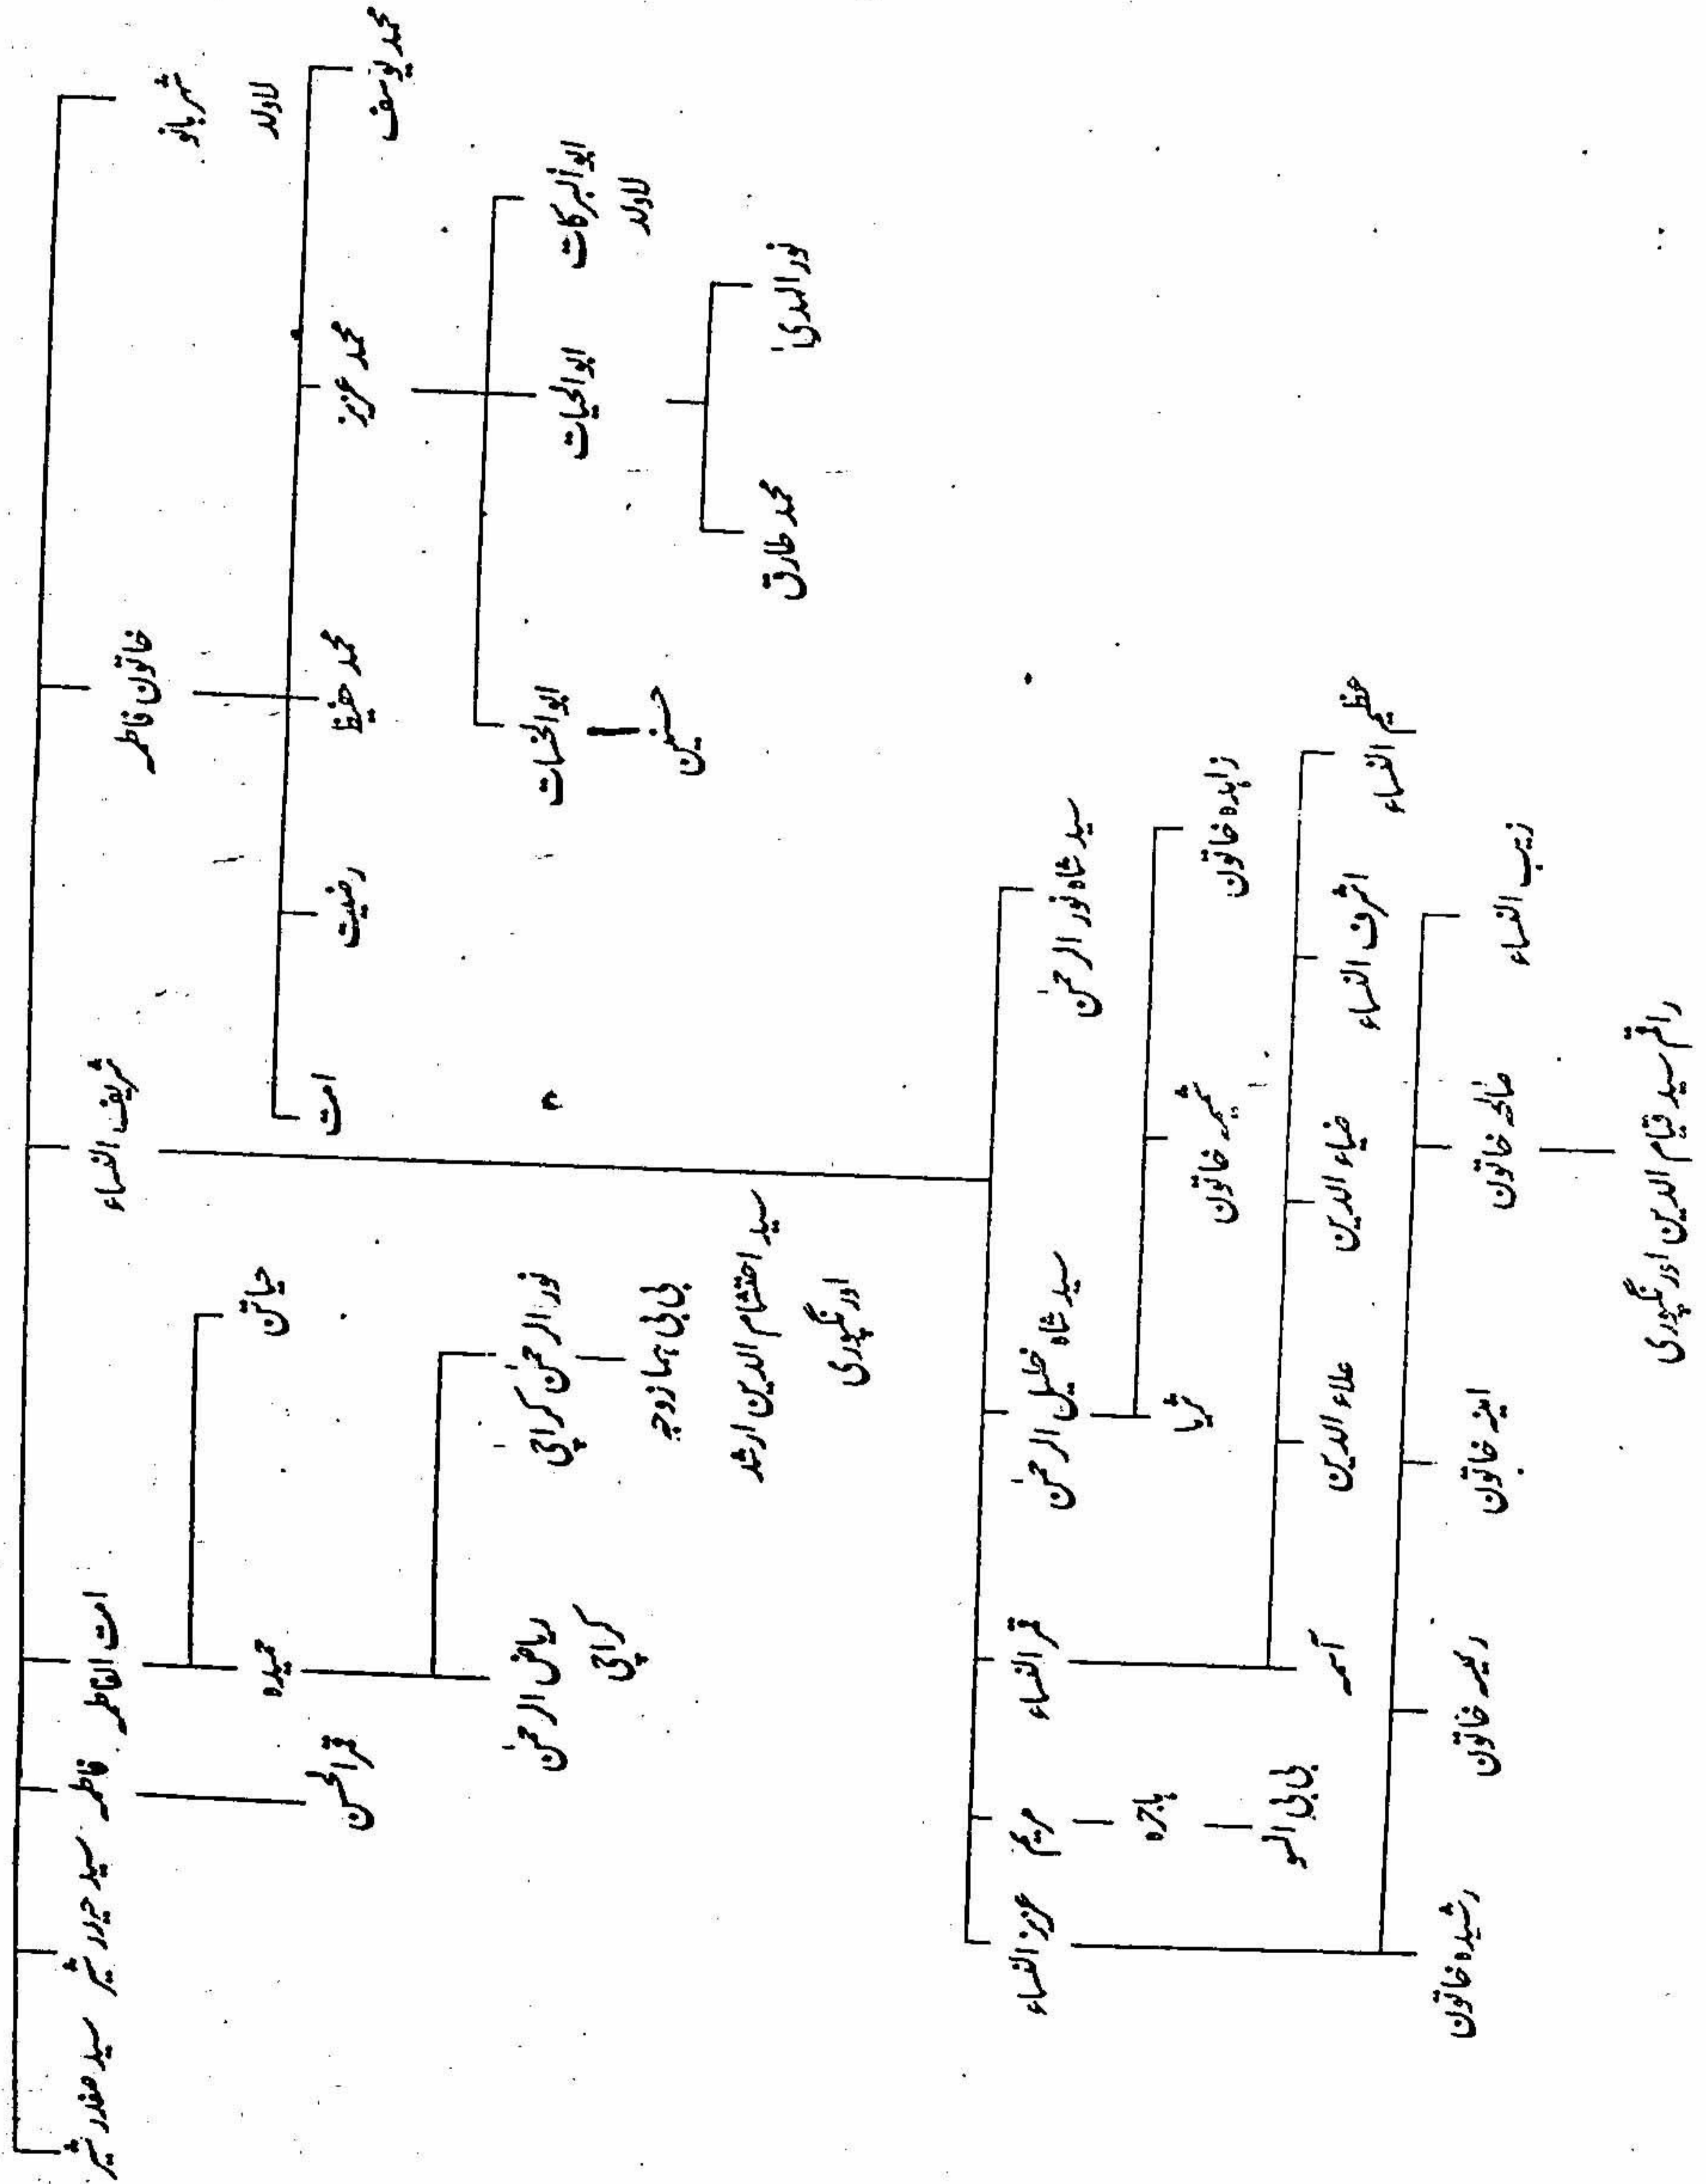 شہر بانو
لاولد
خاتون فاطمہ
شریف النساء
امت الفاطمہ
فاطمہ
سید حیدر شیر
سید صفدر شیر
محمد یوسف
محمد عزیز
محمد حفیظ
رضیت
امت
حیاتن
حمیدہ
قمر الحسن
ابوالبرکات
لاولد
ابوالحیات
ابوالحسنات
حسنین
نور الہدیٰ
محمد طارق
نور الرحمٰن کراچی
ریاض الرحمٰن
کراچی
بی بی ہما زوجہ
سید احتشام الدین ارشد
اورنگپوری
سید شاہ نور الرحمٰن
سید شاہ خلیل الرحمٰن
قمر النساء
مریم
عزیز النساء
زاہدہ خاتون
شمیمہ خاتون
ثریا
ہاجرہ
بی بی السو
عظیم النساء
اشرف النساء
ضیاء الدین
علاء الدین
آسمہ
زیب النساء
صالحہ خاتون
امینہ خاتون
رئیسہ خاتون
رشیدہ خاتون
راقم سید قیام الدین اورنگپوری